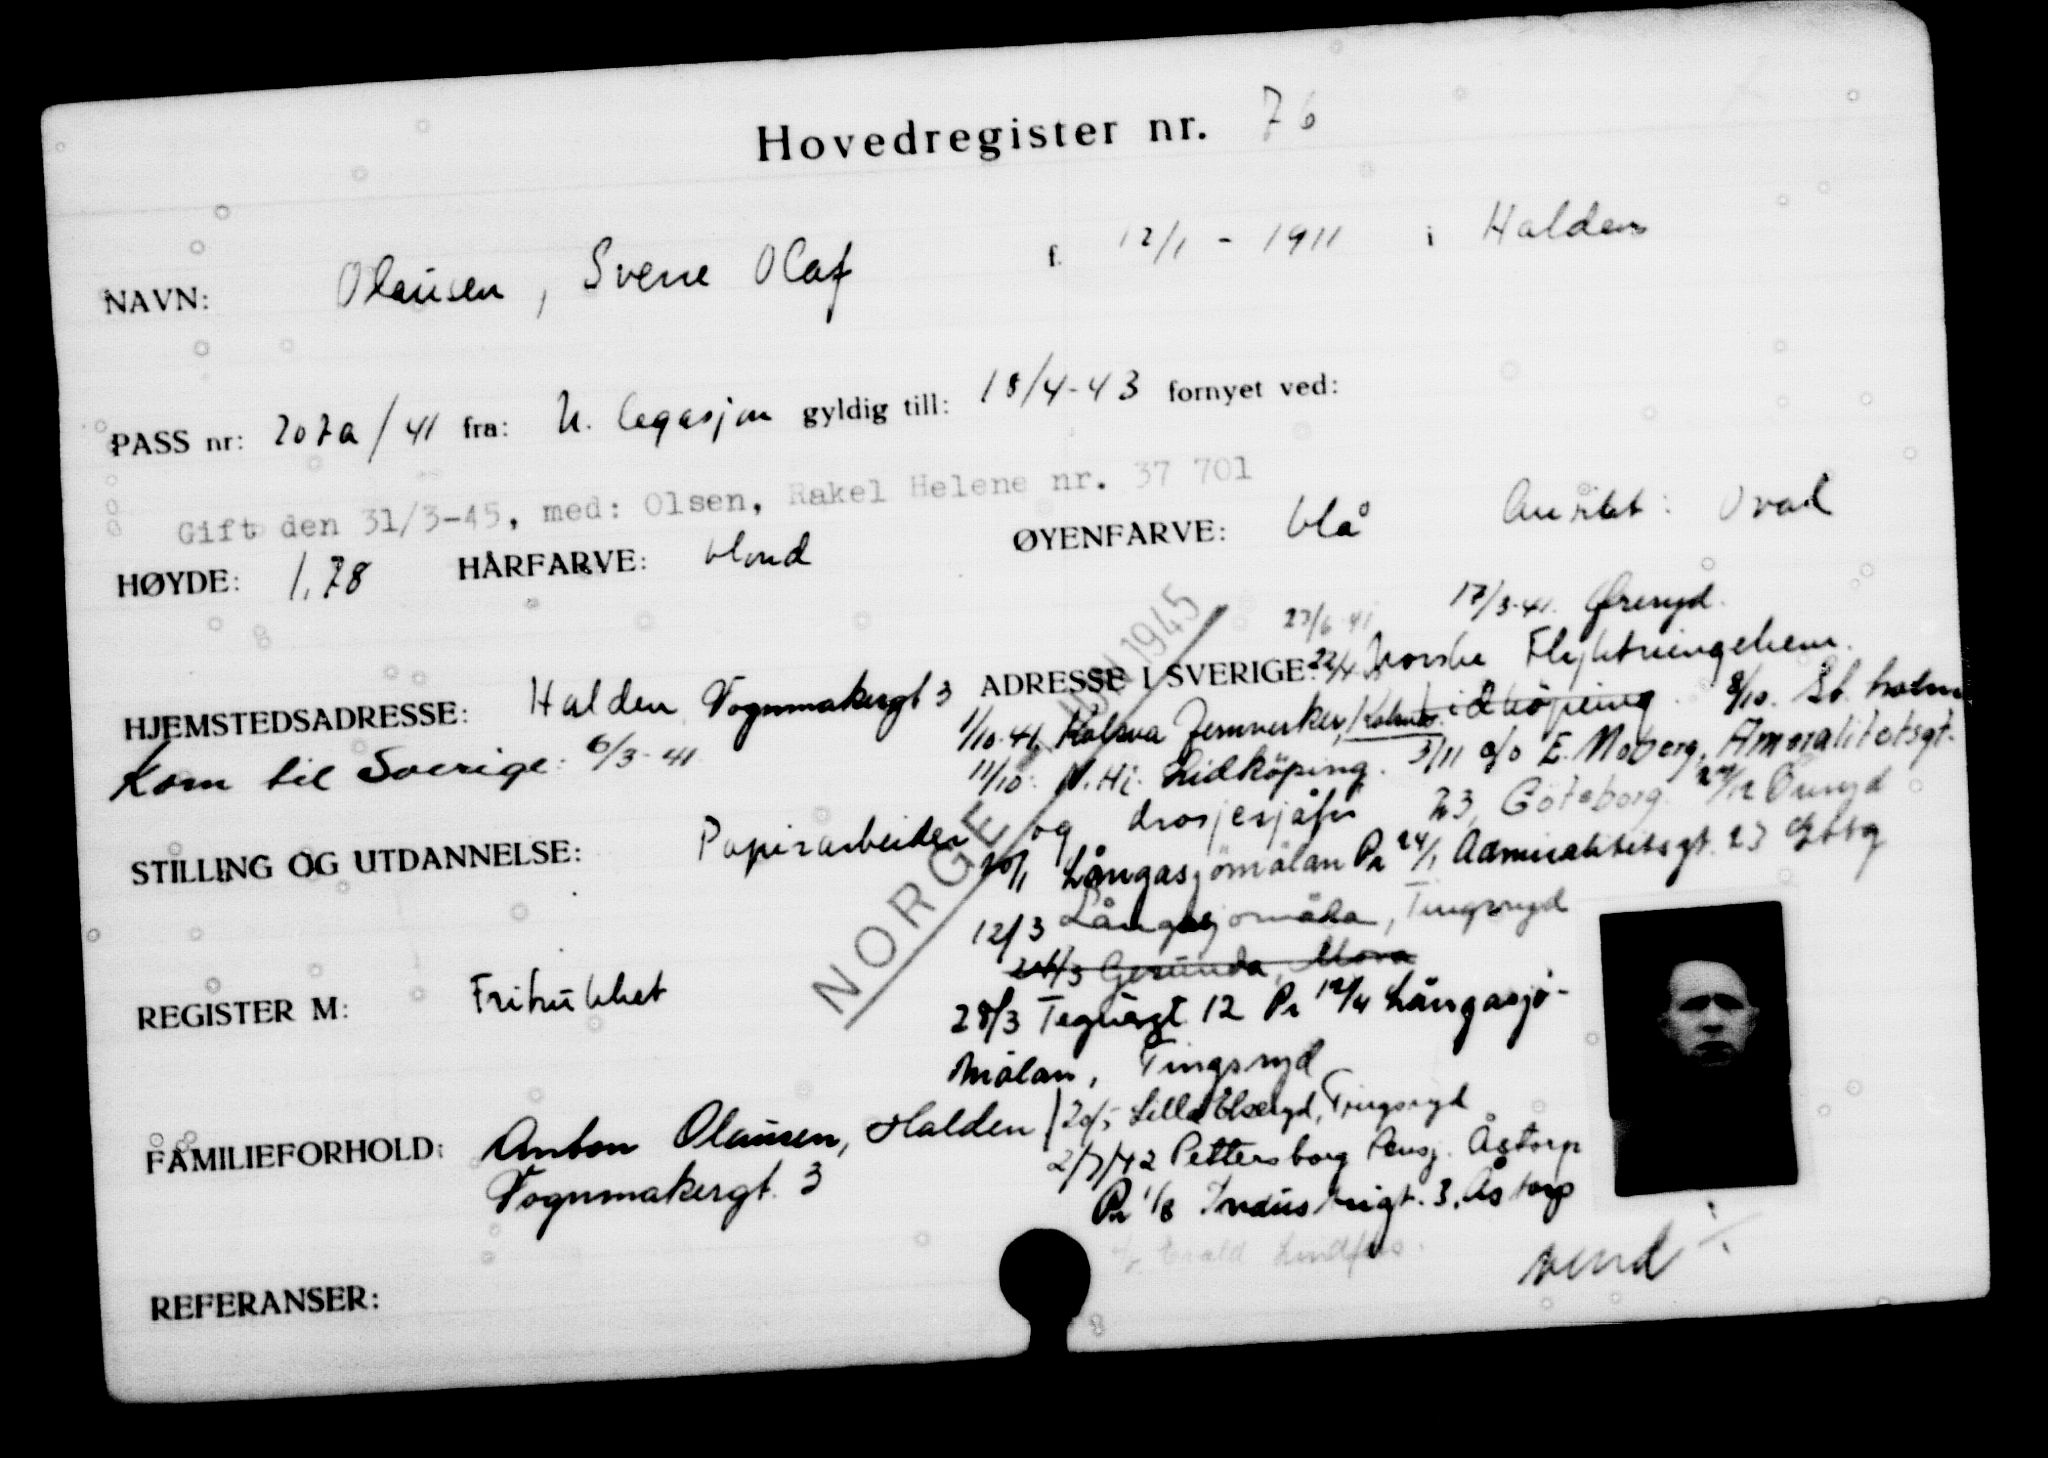 Hovedregister nr. 76
NAVN: Olausen, Sverre Olaf f. 12/1 - 1911 i Halden
PASS nr: 207a/41 fra: N. legasjon gyldig till: 18/4-43 fornyet ved:
Gift den 31/3-45, med: Olsen, Rakel Helene nr. 37 701
HØYDE: 1,78 HÅRFARVE: blond ØYENFARVE: blå Ansikt: Oval
17/3-41. Öreryd.
23/6 41
HJEMSTEDSADRESSE: Halden Vognmakergt 3 ADRESSE I SVERIGE: 22/4 Norske Flyktningehem.
1/10-41, Kolsva Jernverker, Kolsva Lidköping. 8/10. St. holm
Kom til Sverige: 6/3-41 11/10: N. Hi. Lidköping. 3/11 c/o E. Moberg, Ameralitetsgt.
STILLING OG UTDANNELSE: Papirarbeider og drosjesjåfør 23, Göteborg.
20/1 Långasjömålan Pr 24/1 Admiralitetsgt. 23 Gbtg
NORGE 1945
12/3 Långasjömåla, Tingsryd
24/3 Gesunda, Mora
REGISTER M: Fritukket
28/3 Tegnérgt 12 Pr 12/4 Långasjö-
målan, Tingsryd
FAMILIEFORHOLD: Anton Olausen, Halden
Vognmakergt. 3
20/5 Lilla Elseryd, Tingsryd
2/7/42 Pettersborg Pensj. Åstorp
Pr 1/8 Industrigt. 3, Åstorp
vend
REFERANSER: